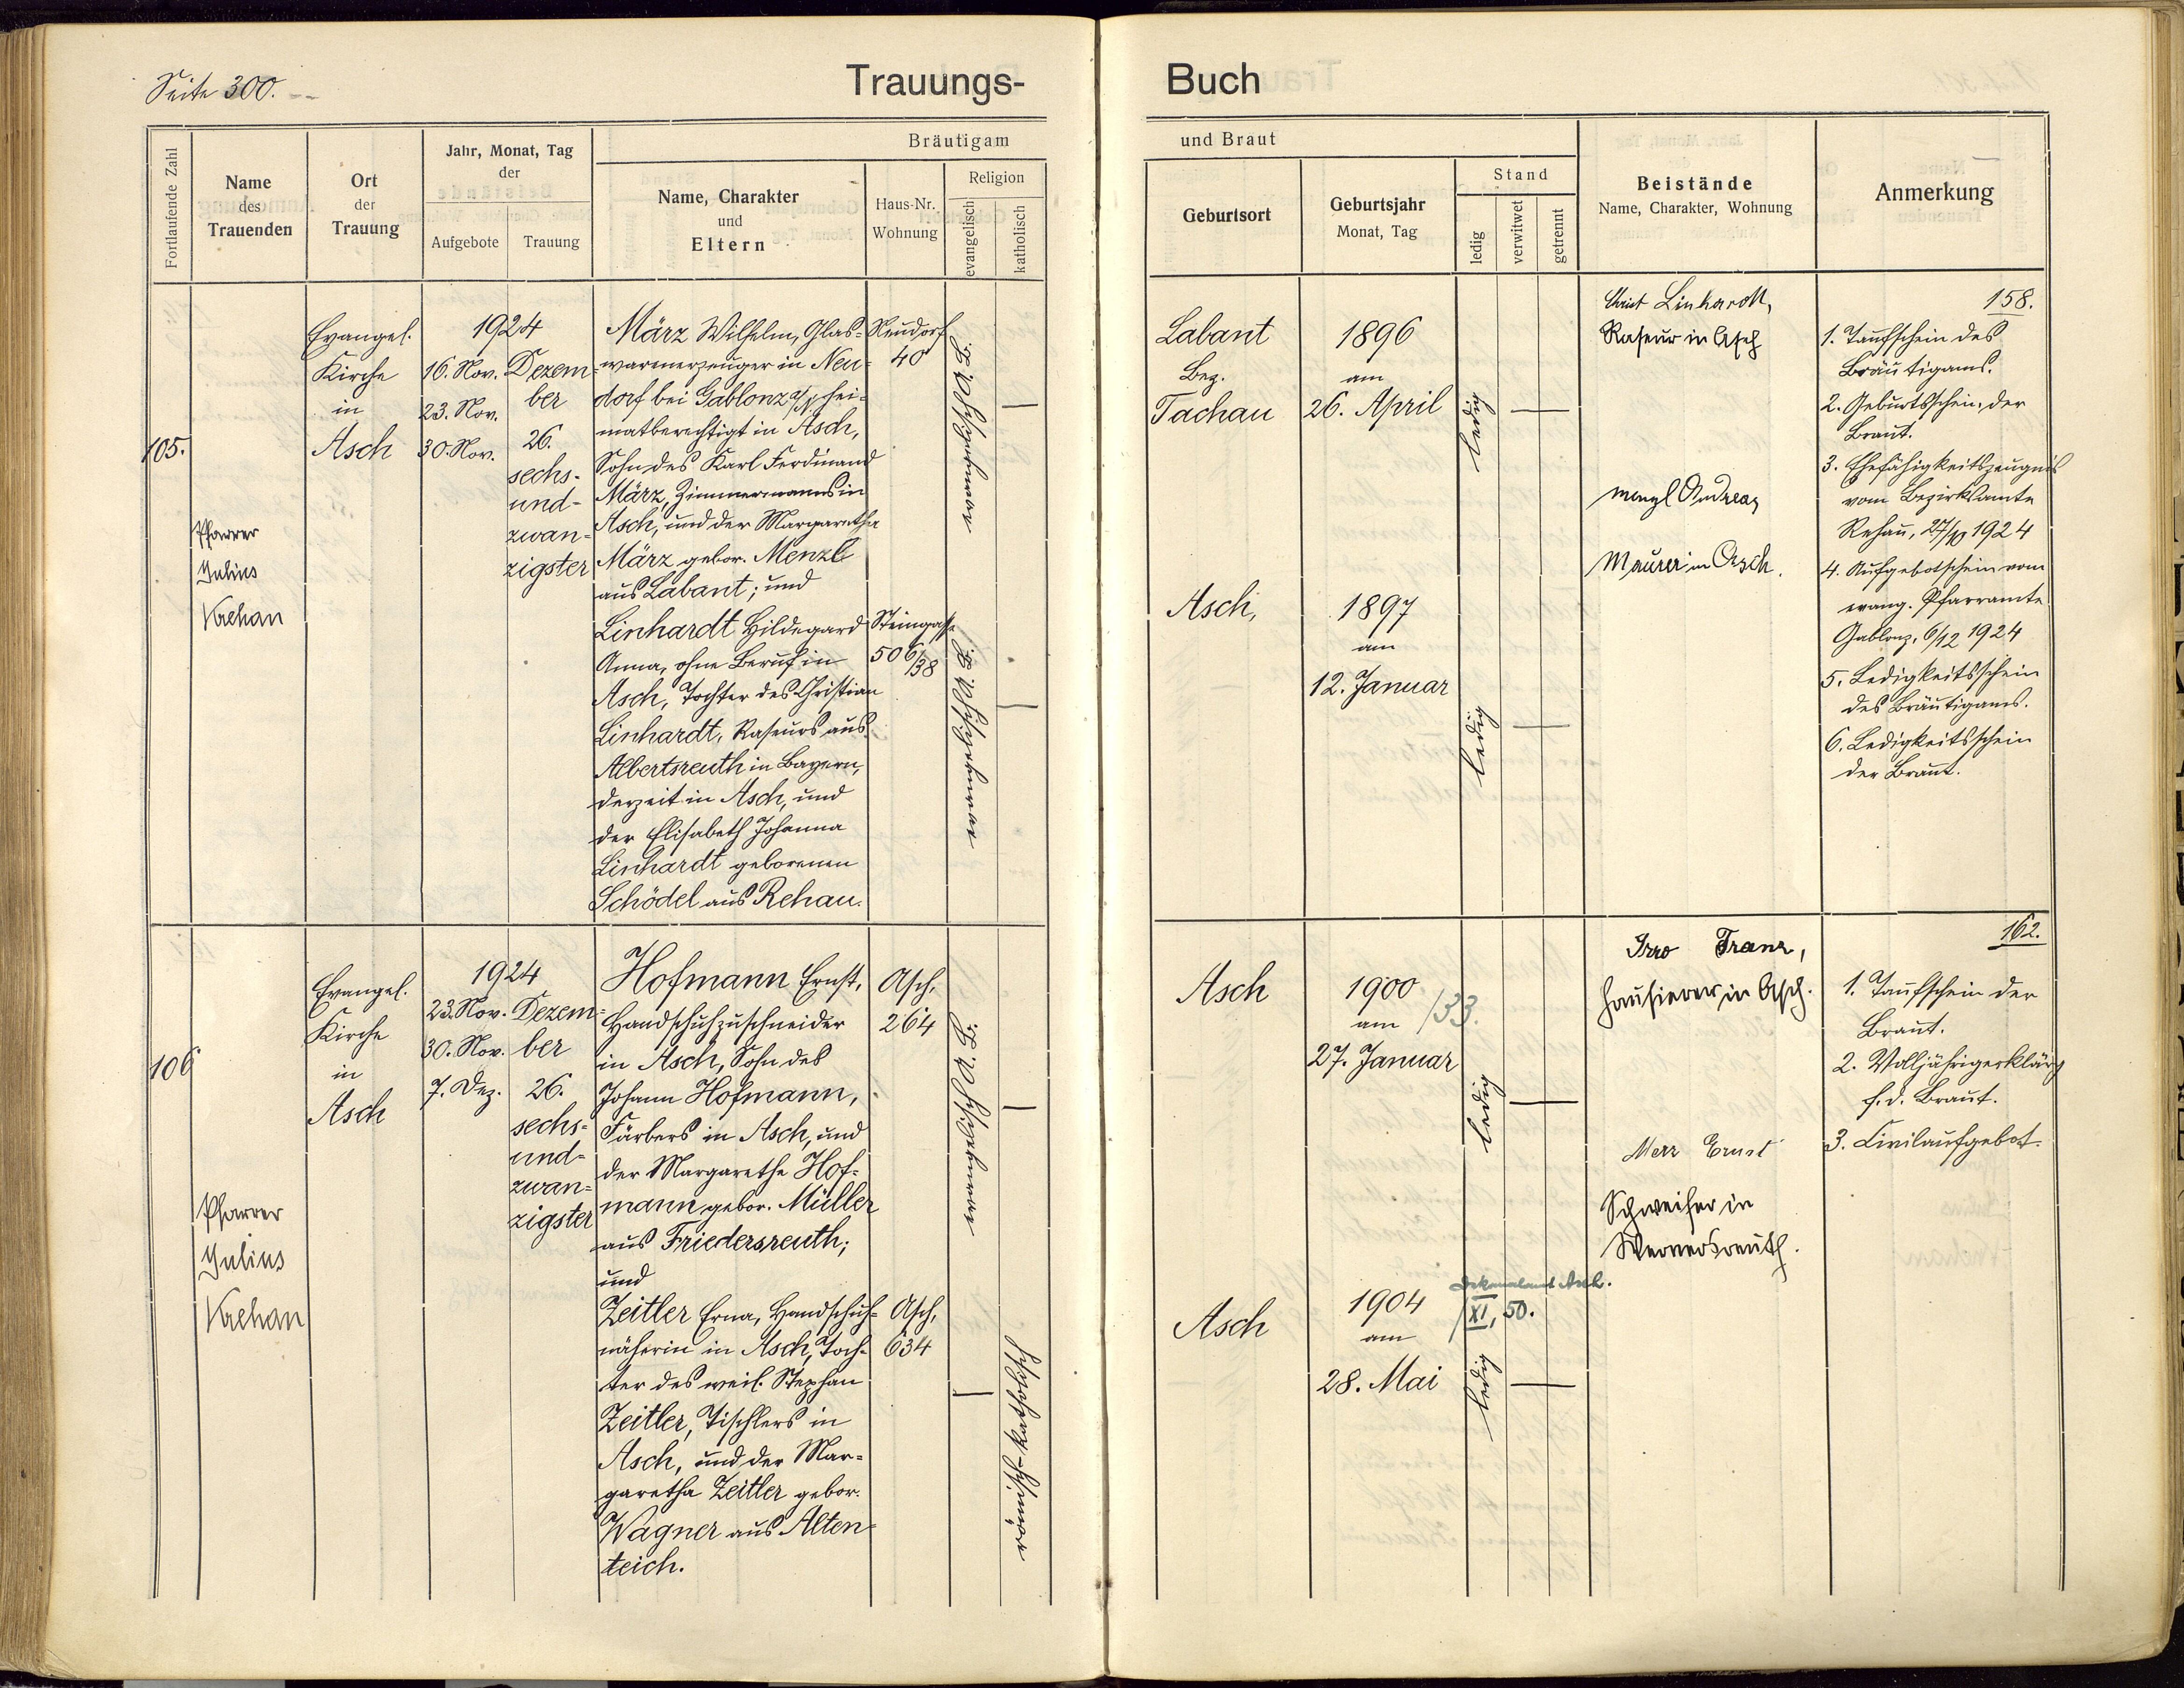 Seite 300.
Trauungs-
Buch
Fortlaufende Zahl
Name
des
Trauenden
Ort
der
Trauung
Jahr, Monat, Tag
der
Aufgebote
Trauung
Bräutigam
Name, Charakter
und
Eltern
Haus-Nr.
Wohnung
Religion
evangelisch
katholisch
und Braut
Geburtsort
Geburtsjahr
Monat, Tag
Stand
ledig
verwitwet
getrennt
Beistände
Name, Charakter, Wohnung
Anmerkung
105.
Pfarrer
Julius
Krehan
Evangel.
Kirche
in
Asch
1924
16. Nov.
23. Nov.
30. Nov.
Dezem-
ber
26.
sechs-
und-
zwan-
zigster
März Wilhelm, Glas-
warenerzeuger in Neu-
dorf bei Gablonz a/N hei-
matberechtigt in Asch,
Sohn des Karl Ferdinand
März, Zimmermanns in
Asch, und der Margaretha
März gebor. Menzl
aus Labant; und
Linhardt Hildegard
Anna, ohne Beruf in
Asch, Tochter des Christian
Linhardt, Raseurs aus
Albertsreuth in Bayern,
derzeit in Asch, und
der Elisabeth Johanna
Linhardt geborenen
Schödel aus Rehau.
Neudorf
40
Steingasse
506/38
Labant
Bez.
Tachau
1896
am
26. April
ledig
Asch,
1897
am
12. Januar
ledig
Christ Linhardt,
Raseur in Asch
Menzl Andreas
Maurer in Asch.
158.
1. Taufschein des
Bräutigams.
2. Geburtsschein der
Braut.
3. Ehefähigkeitszeugnis
vom Bezirksamte
Rehau, 27/10 1924
4. Aufgebotschein vom
evang. Pfarramte
Gablonz, 6/12 1924
5. Ledigkeitsschein
des Bräutigams.
6. Ledigkeitsschein
der Braut.
106
Pfarrer
Julius
Krehan
Evangel.
Kirche
in
Asch
1924
23. Nov.
30. Nov.
7. Dez.
Dezem-
ber
26.
sechs-
und-
zwan-
zigster
Hofmann Ernst,
Handschuhzuschneider
in Asch, Sohn des
Johann Hofmann,
Färbers in Asch, und
der Margarethe Hof-
mann gebor. Müller
aus Friedersreuth;
und
Zeitler Erna, Handschuh-
näherin in Asch, Toch-
ter des weil. Stephan
Zeitler, Tischlers in
Asch, und der Mar-
garetha Zeitler gebor.
Wagner aus Alten-
teich.
Asch,
264
Asch,
634
römisch-katholisch
Asch
1900
am /33.
27. Januar
ledig
Asch
1904
am
28. Mai
Dekanalamt Asch.
XI, 50.
ledig
Franz,
Hausierer in Asch.
Merz Ernst
Schweifer in
Wernersreuth.
162.
1. Taufschein der
Braut.
2. Volljährigerklärg
f. d. Braut.
3. Civilaufgebot.